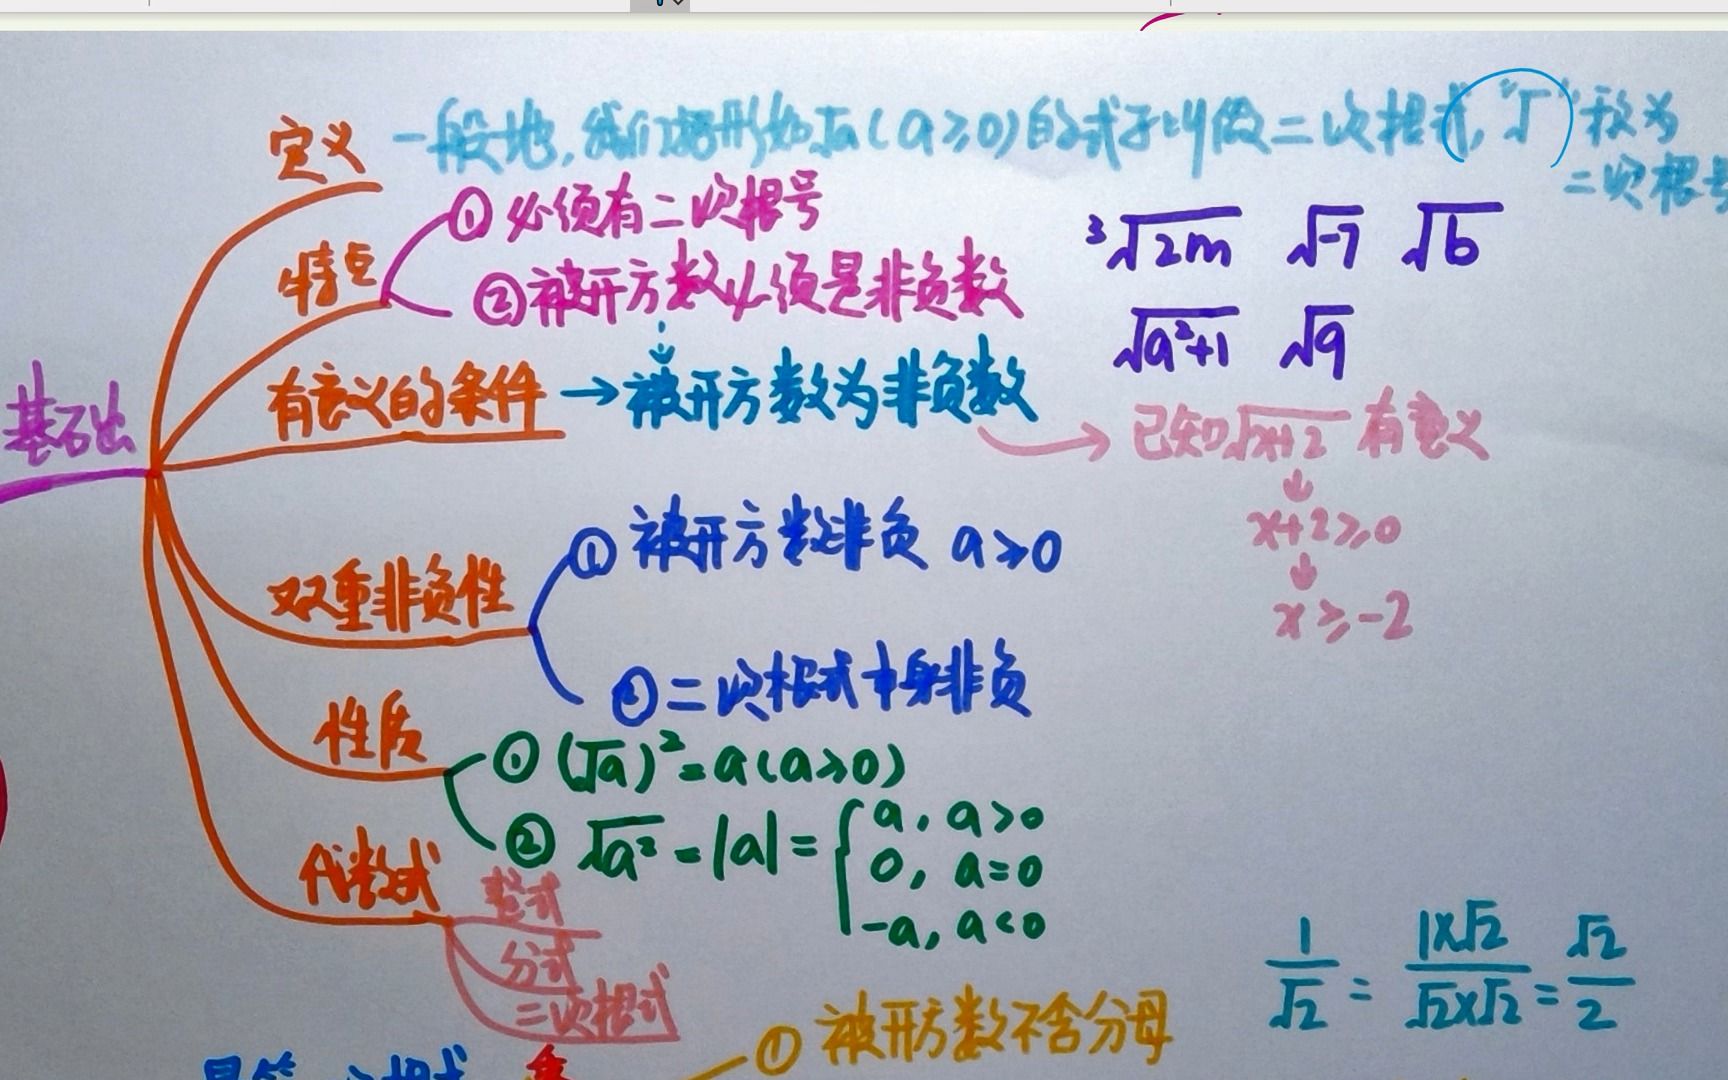 基础
定义
一般地,我们把形如√a(a≥0)的式子叫做二次根式,"√"称为
二次根号
特点
①必须有二次根号
②被开方数必须是非负数
³√2m √-7 √b
√a²+1 √9
有意义的条件→被开方数为非负数
已知√x+2 有意义
x+2≥0
x≥-2
双重非负性
①被开方数非负 a≥0
②二次根式本身非负
性质
①(√a)²=a(a≥0)
②√a²=|a|={a,a>0
0,a=0
-a,a<0
代数式
整式
分式
二次根式
1/√2=1×√2/√2×√2=√2/2
①被开方数不含分母